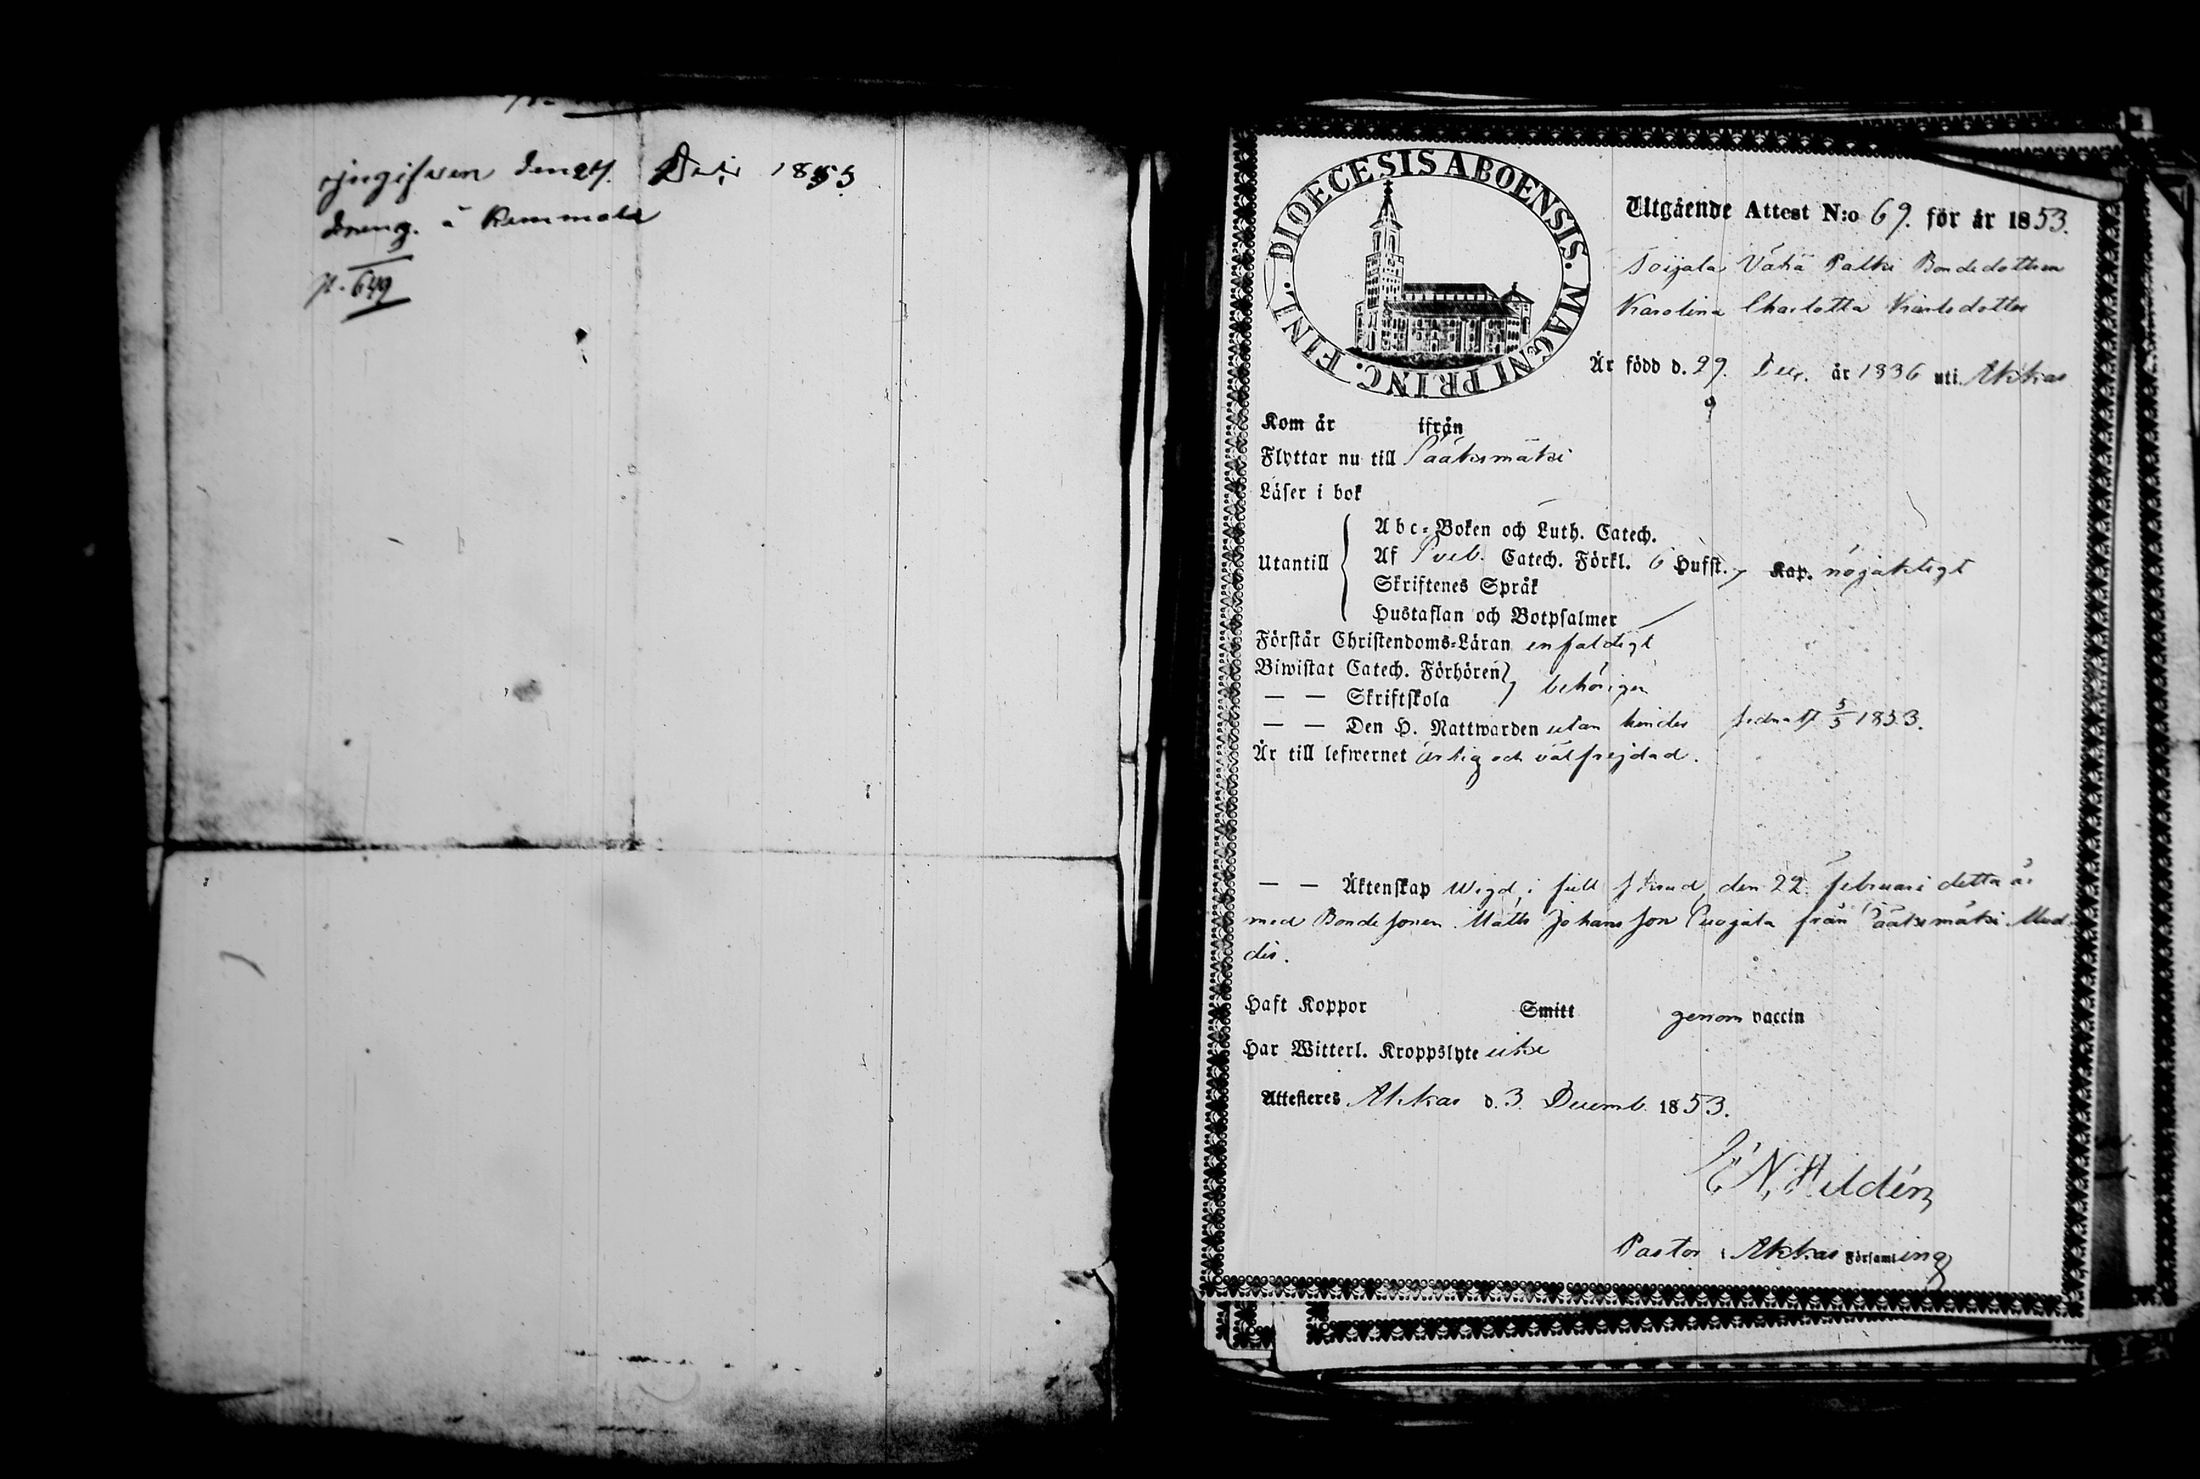 ingifven den 24. Dec. 1853
dreng. å Remmola
p. 649
DIOECESIS ABOENSIS. MAGNI PRINC. FINL.
Utgående Attest N:o 69. för år 1853.
Toijala Vähä Palki Bondedottren
Karolina Charlotta Karlsdotter
Är född d. 29. Dec. år 1836 uti Akkas
Kom år ifrån
Flyttar nu till Pääksmäki
Läser i bok
Utantill
Abc-Boken och Luth. Catech.
Af Sveb. Catech. Förkl. 6 Hufst. Kap. nöjaktigt
Skriftenes Språk
Hustaflan och Botpsalmer
Förstår Christendoms-Läran enfaldigt
Biwistat Catech. Förhören
— — Skriftskola behörigen
— — Den H. Nattwarden utan hinder sednast 5/5 1853.
Är till lefwernet ärlig och välfrejdad.
— — Äktenskap Wigd, i full, den 22 februari detta år
med Bondesonen Matts Johansson Cuojala från Pääksmäki Med-
dis.
Haft Koppor Smitt genom vaccin
Har Witterl. Kroppslyte icke
Attesteres Akkas d. 3. Decemb. 1853.
E. N. Hildén
Pastor i Akkas Församling